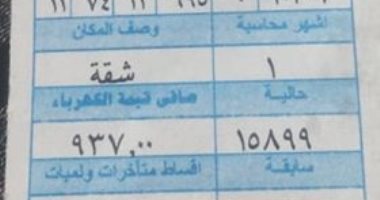 أشهر محاسبة وصف المكان
١ شقة
حالية صافى قيمة الكهرباء
١٥٨٩٩ ٩٣٧,٠٠
سابقة اقساط متأخرات ولمبات